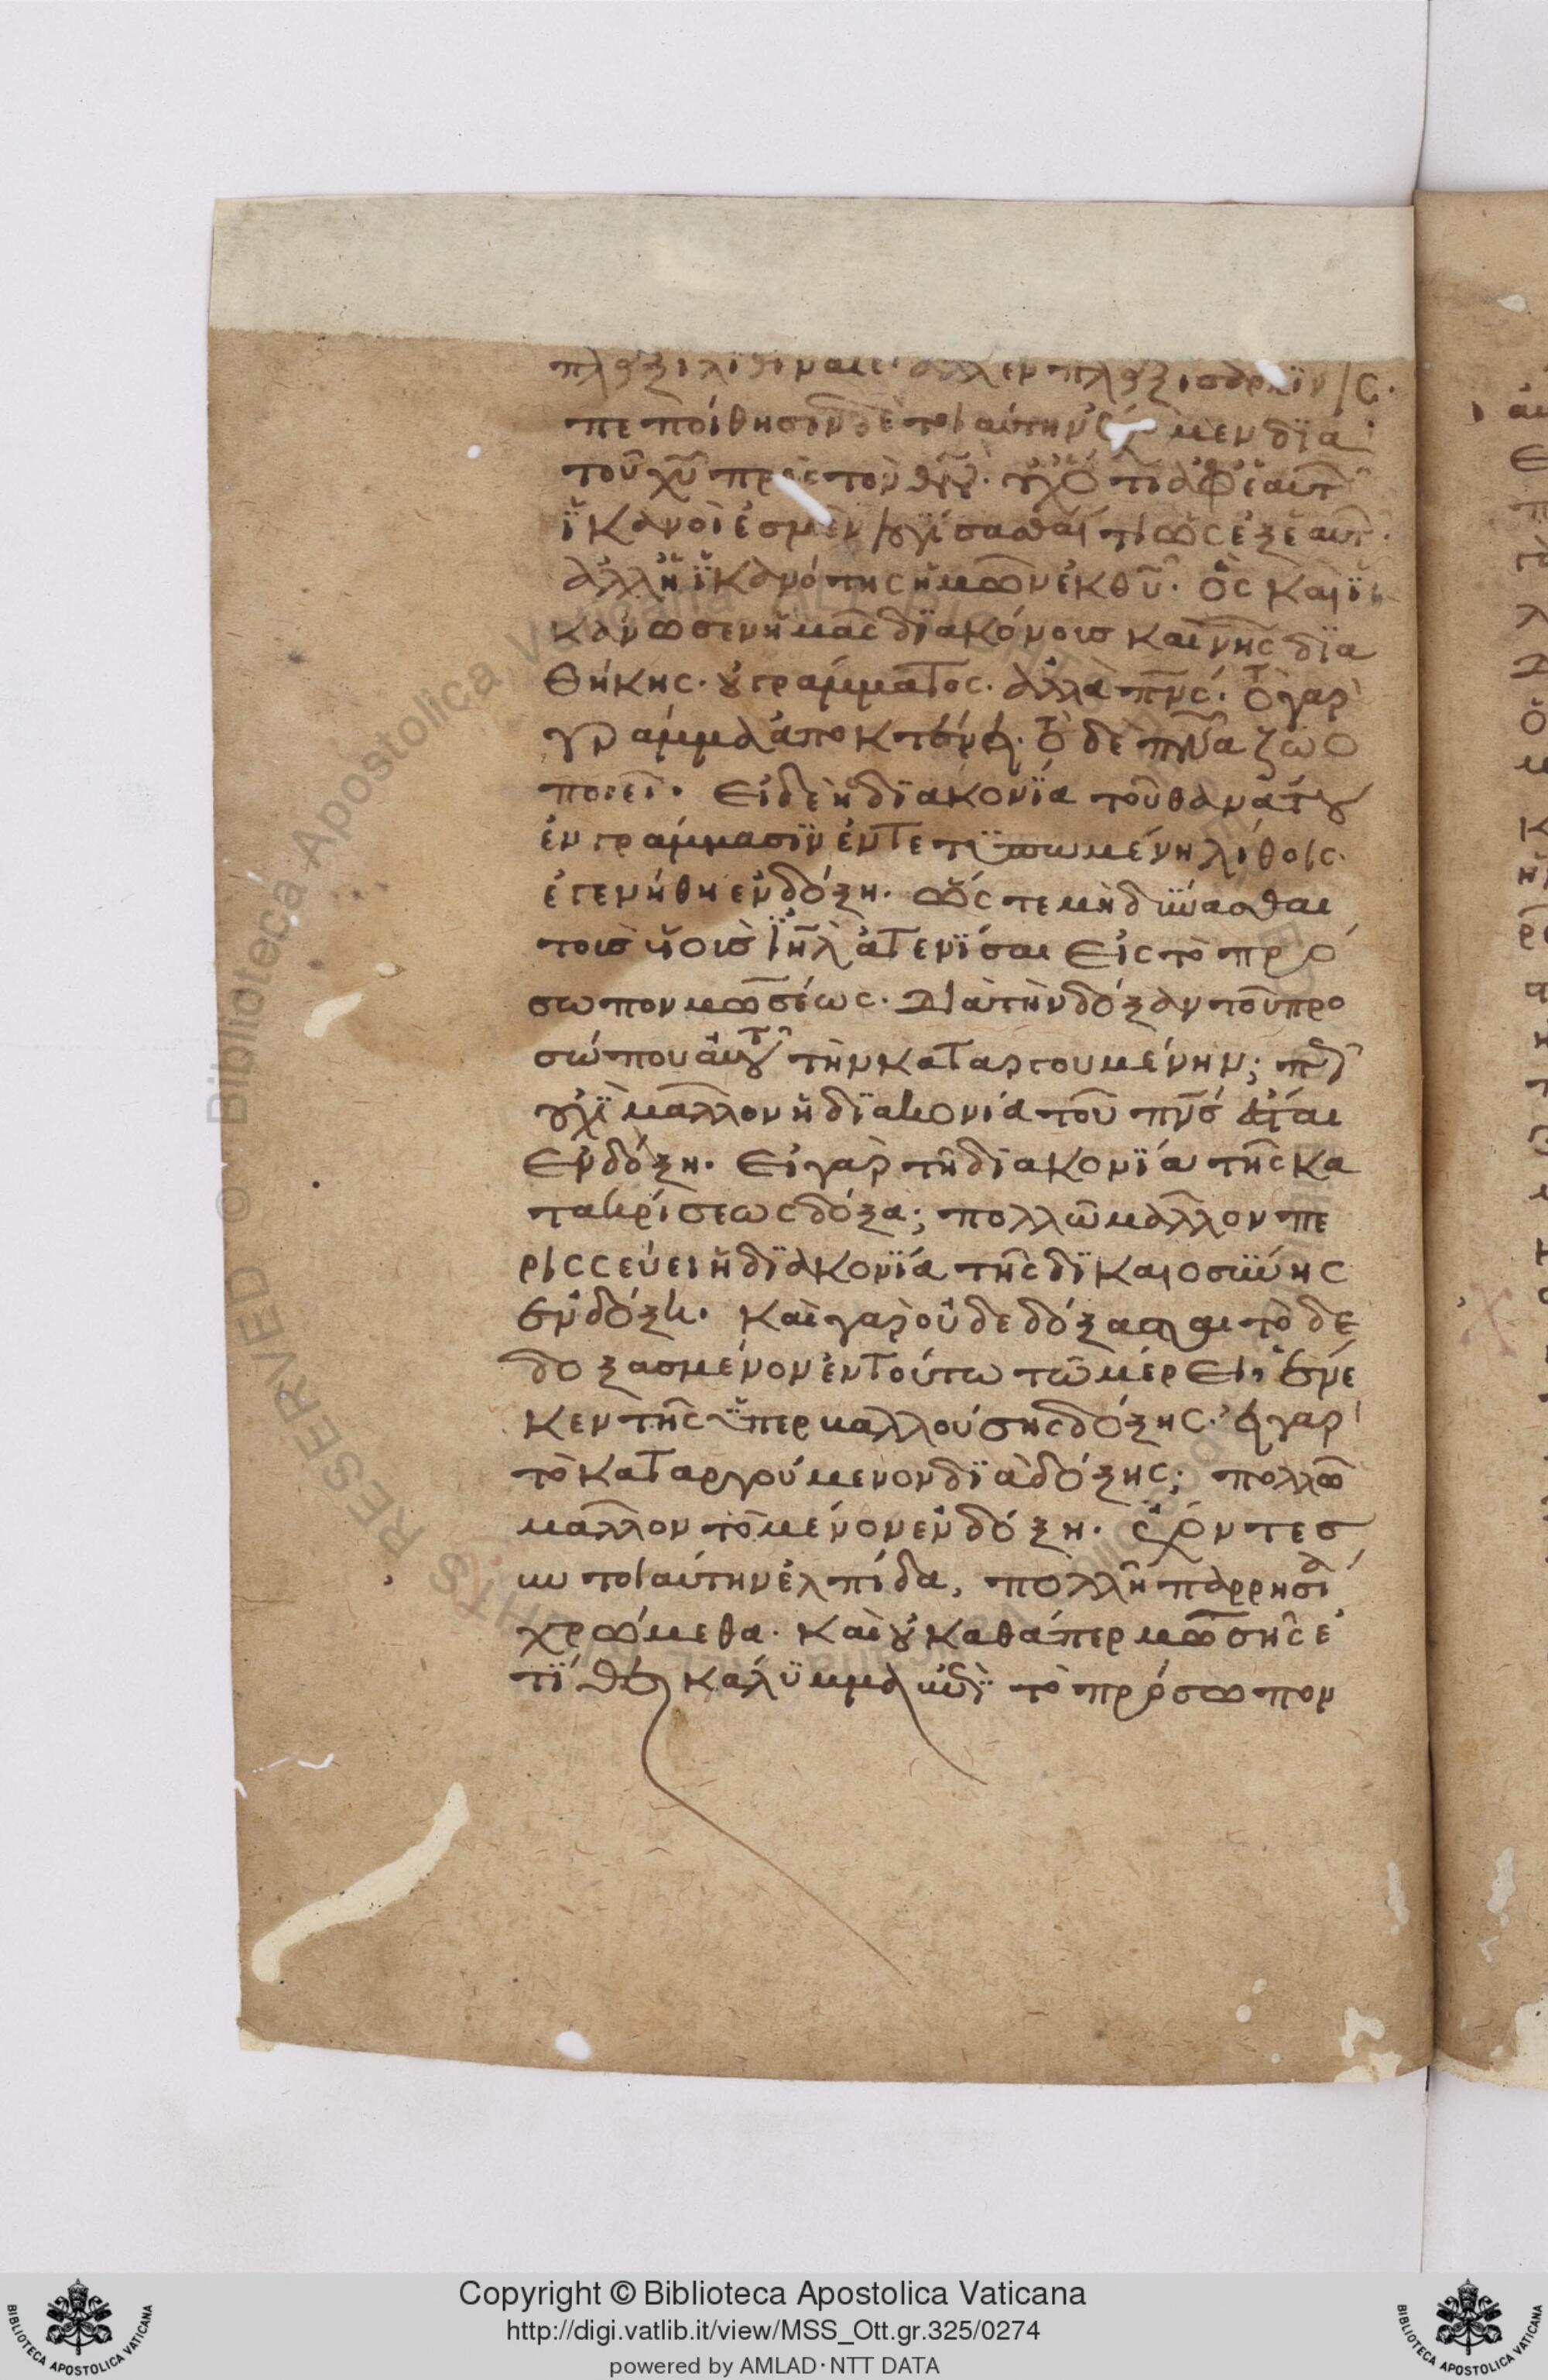 πλαξὶ λιθίναις· ἀλλ ἐν πλαξὶ σαρκίν/ς·
πεποίθησιν δὲ τοιαύτην ἔχομεν διὰ
τοῦ χῦ πρὸς τὸν θν· οὐχ ὅτι ἀφ ἑαυτ
ἱκανοί ἐσμεν λογίσασθαί τι ὡς ἐξ ἑαυτ·
ἀλλ ἡ ἱκανότης ἡμῶν ἐκ θῦ· ὃς καὶ ἱ
κάνωσεν ἡμᾶς διακόνοις καινῆς δια
θήκης· οὐ γράμματος· ἀλλὰ πνς· τὸ γὰρ
γράμμα ἀποκτένει· τὸ δὲ πνα ζωο
ποιεῖ· Εἰ δὲ ἡ διακονία τοῦ θανάτου
ἐν γράμμασιν ἐντετϋπωμένη λίθοις·
ἐγενήθη ἐν δόξη· ὥστε μὴ δύνασθαι
τοῖς υἱοῖς ἰηλ ἀτενίσαι εἰς τὸ πρό
σωπον μωσέως· διὰ τὴν δόξαν τοῦ προ
σώπου αὐτοῦ τὴν καταργουμένην; πῶς
οὐχὶ μᾶλλον ἡ διακονία τοῦ πνς ἔσται
ἐν δόξη· Εἰ γὰρ τῆ διακονία τῆς κα
τακρίσεως δόξα; πολλῶ μᾶλλον πε
ρισσεύει ἡ διακονία τῆς δικαιοσύνης
ἐν δόξη· καὶ γὰρ οὐ δεδόξασται τὸ δε
δοξασμένον ἐν τούτω τῶ μέρει, ἕνε
κεν τῆς ὑπερβαλλούσης δόξης· εἰ γὰρ
τὸ καταργούμενον διὰ δόξης; πολλῶ
μᾶλλον τὸ μένον ἐν δόξη· ἔχοντες
οὖν τοιαύτην ἐλπίδα, πολλῆ παρρησία
χρώμεθα· καὶ οὐ καθάπερ μωσῆς ἐ
τίθει κάλϋμμα ἐπὶ τὸ πρόσωπον
Copyright © Biblioteca Apostolica Vaticana
http://digi.vatlib.it/view/MSS_Ott.gr.325/0274
powered by AMLAD·NTT DATA